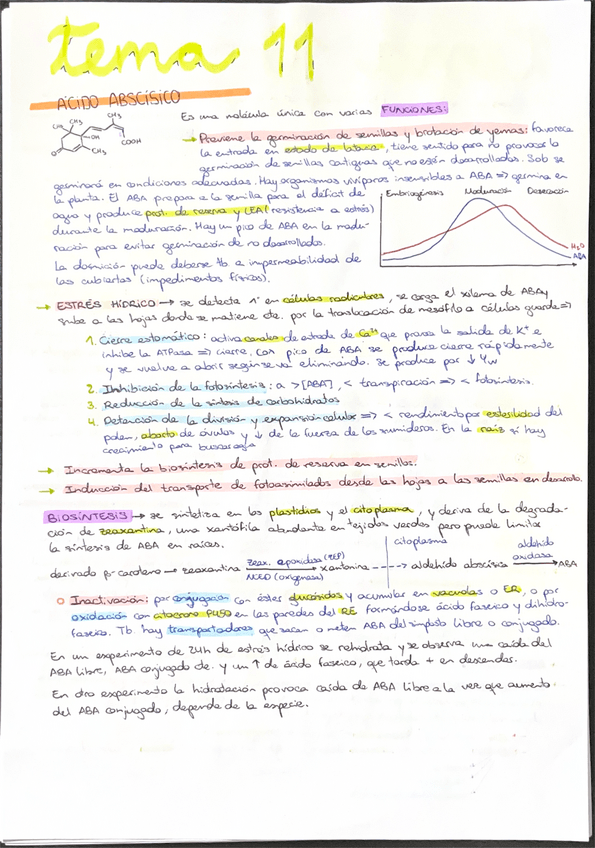 tema 11
ÁCIDO ABSCÍSICO
CH₃ CH₃ CH₃
OH
COOH
O
CH₃
Es una molécula única con varias FUNCIONES:
→ Previene la germinación de semillas y brotación de yemas: favorece
la entrada en estado de latencia, tiene sentido para no provocar la
germinación de semillas contiguas que no están desarrolladas. Solo se
germinará en condiciones adecuadas. Hay organismos vivíparos insensibles a ABA => germina en
la planta. El ABA prepara a la semilla para el déficit de
agua y produce prot. de reserva y LEA (resistencia a estrés)
durante la maduración. Hay un pico de ABA en la madu-
ración para evitar germinación de no desarrollado.
La dormición puede deberse tb. a impermeabilidad de
las cubiertas (impedimentos físicos).
Embriogénesis Maduración Desecación
H₂O
ABA
→ ESTRÉS HÍDRICO → se detecta 1º en células radiculares, se carga el xilema de ABA y
sube a las hojas donde se mantiene cte. por la translocación de mesófilo a células guarda =>
1. Cierre estomático: activa canales de entrada de Ca²⁺ que provoca la salida de K⁺ e
inhibe la ATPasa => cierre. Con pico de ABA se produce cierre rápidamente
y se vuelve a abrir según se va eliminando. Se produce por ↓ Ψw
2. Inhibición de la fotosíntesis: a > [ABA], < transpiración => < fotosíntesis.
3. Reducción de la síntesis de carbohidratos
4. Detención de la división y expansión celular => < rendimiento por esterilidad del
polen, aborto de óvulos y ↓ de la fuerza de los sumideros. En la raíz sí hay
crecimiento para buscar agua
→ Incrementa la biosíntesis de prot. de reserva en semillas.
→ Inducción del transporte de fotoasimilados desde las hojas a las semillas en desarrollo.
BIOSÍNTESIS → se sintetiza en los plastidios y el citoplasma, y deriva de la degrada-
ción de zeaxantina, una xantófila abundante en tejidos verdes pero puede limitar
la síntesis de ABA en raíces.
citoplasma
derivado β-caroteno → zeaxantina zeax. epoxidasa (ZEP) NCED (oxigenasa) → xantonina ----> aldehído abscísico aldehído oxidasa → ABA
○ Inactivación: por conjugación con éster glucósidos y acumular en vacuolas o ER, o por
oxidación con citocromo P450 en las paredes del RE formándose ácido faseico y dihidro-
faseico. Tb hay transportadores que sacan o meten ABA del simplasto libre o conjugado.
En un experimento de 24h de estrés hídrico se rehidrata y se observa una caída del
ABA libre, ABA conjugado cte. y un ↑ de ácido faseico, que tarda + en descender.
En otro experimento la hidratación provoca caída de ABA libre a la vez que aumento
del ABA conjugado, depende de la especie.